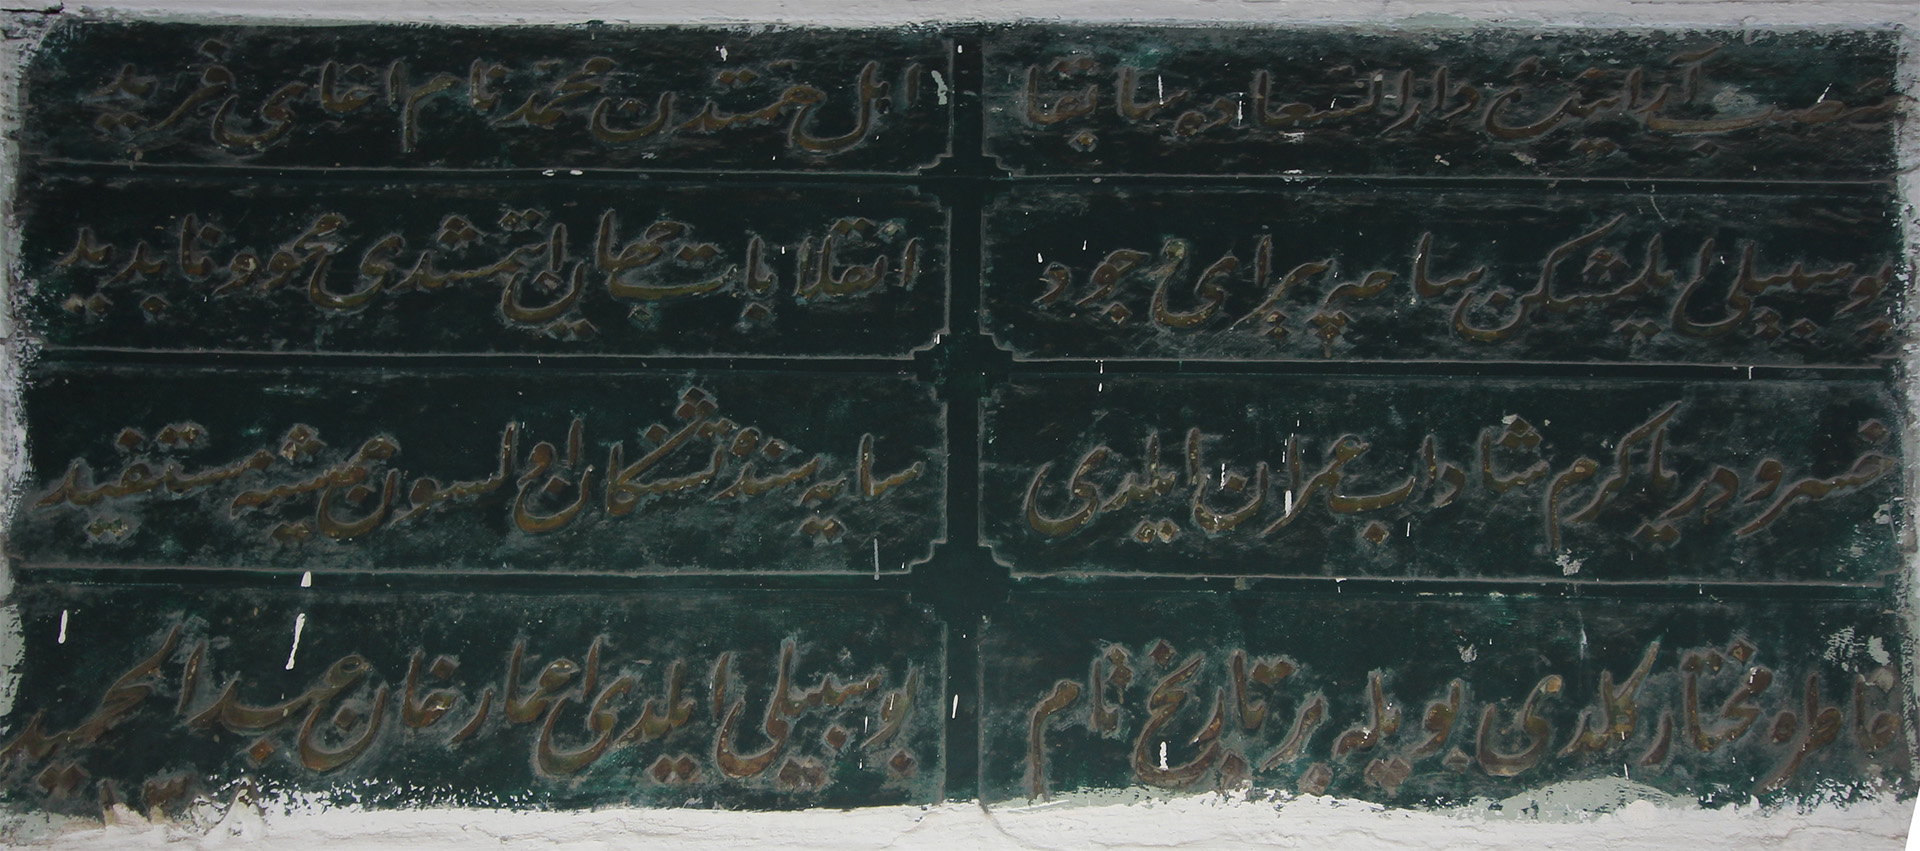 منصب آرایندۀ دار السعاده سابقا
اهل همتدن محمد نام اغای فرید
بو سبیلی ایلمشکن ساحه پیرای وجود
انقلابات جهان ایتمشدی محو و ناپدید
خسرو دریا کرم شاداب عمران ایلدی
سایه سنده تشنکان اولسون همیشه مستفید
خاطره مختار کلدی بویله بر تاریخ تام
بو سبیلی ایلدی اعمار خان عبد الحمید